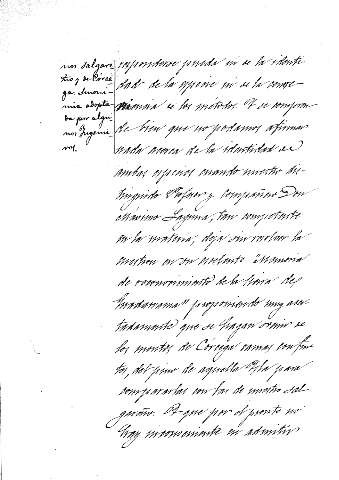 nos salgare-
ño y de Corce-
ga. Sinoni-
mia adopta-
da por algu-
nos Ingenie-
ros.
respondense pueda ni se la identi
dad de la especie ni se la
de los metodos. Y se compren-
de bien que no podamos afirmar
nada acerca de la identidad de
ambas especies cuando nuestro dis-
tinguido Profesor y compañero Don
Máximo Laguna, tan competente
en la materia, deja sin resolver la
cuestion en su excelente "Memoria
de reconocimiento de la Sierra de
Guadarrama" proponiendo muy acer-
tadamente que se hagan venir de
los montes de Corcega ramas con fru-
tos, del pino de aquella Isla para
compararlas con las de nuestro sal-
gareño. Y que por el pronto no
hay inconveniente en admitir